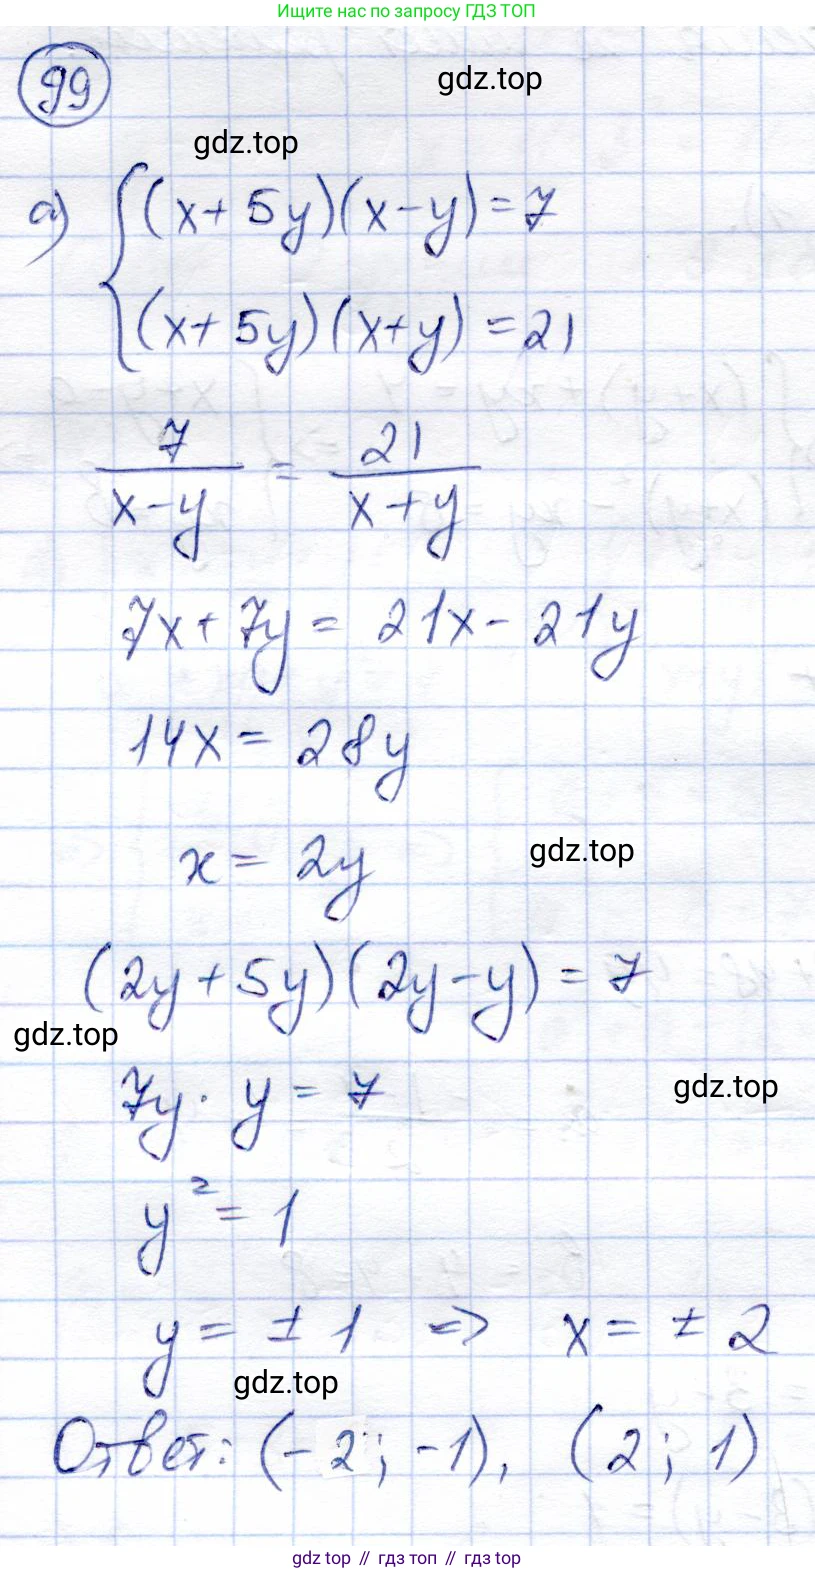 Ищите нас по запросу ГДЗ ТОП
99
gdz.top
gdz.top
а) { (x+5y)(x-y)=7
(x+5y)(x+y)=21
7/(x-y) = 21/(x+y)
7x+7y = 21x-21y
14x = 28y
x = 2y
gdz.top
(2y+5y)(2y-y)=7
gdz.top
7y · y = 7
gdz.top
y² = 1
y = ±1 => x = ±2
gdz.top
Ответ: (-2; -1), (2; 1)
gdz top // гдз топ // gdz top